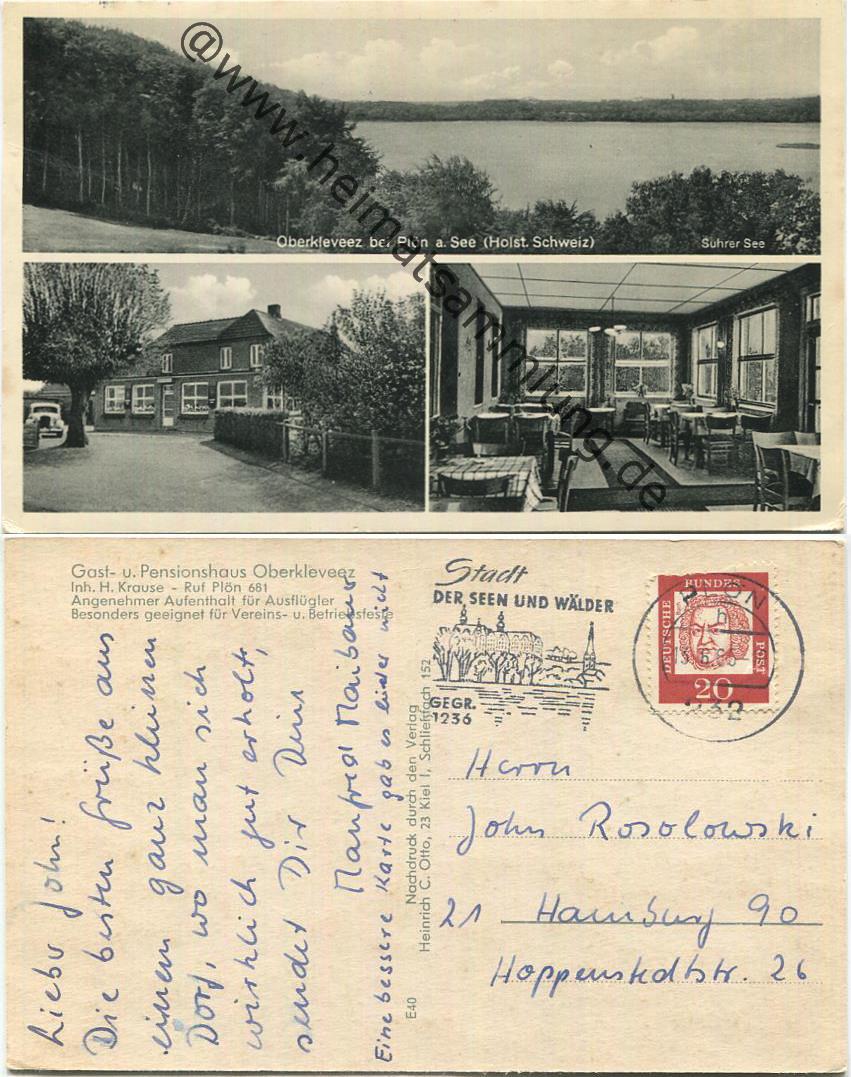 @www.heimatsammlung.de
Oberkleveez bei Plön a. See (Holst. Schweiz)
Suhrer See
Gast- u. Pensionshaus Oberkleveez
Inh. H. Krause - Ruf Plön 681
Angenehmer Aufenthalt für Ausflügler
Besonders geeignet für Vereins- u. Betriebsfeste
Lieber John!
Die besten Grüße aus
einem ganz kleinen
Dorf, wo man sich
wirklich gut erholt,
sendet Dir Dein
Manfred
Eine bessere Karte gab es leider nicht
E40
Nachdruck durch den Verlag
Heinrich C. Otto, 23 Kiel 1, Schließfach 152
Stadt
DER SEEN UND WÄLDER
GEGR.
1236
DEUTSCHE
BUNDES
POST
20
PLÖN
h
232
Herrn
John Rosolowski
21 Hamburg 90
Hoppenstedtstr. 26